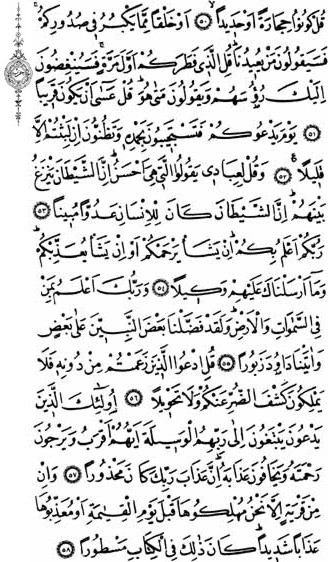 قُلْ كُونُوا حِجَارَةً اَوْ حَدِيدًا ﴿٥٠﴾ اَوْ خَلْقًا مِمَّا يَكْبُرُ فٖى صُدُورِكُمْۚ
فَسَيَقُولُونَ مَنْ يُعِيدُنَاۜ قُلِ الَّذٖى فَطَرَكُمْ اَوَّلَ مَرَّةٍۚ فَسَيُنْغِضُونَ
اِلَيْكَ رُؤُسَهُمْ وَيَقُولُونَ مَتٰى هُوَۜ قُلْ عَسٰٓى اَنْ يَكُونَ قَرٖيبًا
﴿٥١﴾ يَوْمَ يَدْعُوكُمْ فَتَسْتَجٖيبُونَ بِحَمْدِهٖ وَتَظُنُّونَ اِنْ لَبِثْتُمْ اِلَّا
قَلٖيلًا ﴿٥٢﴾ وَقُلْ لِعِبَادٖى يَقُولُوا الَّتٖى هِىَ اَحْسَنُۜ اِنَّ الشَّيْطَانَ يَنْزَغُ
بَيْنَهُمْۜ اِنَّ الشَّيْطَانَ كَانَ لِلْاِنْسَانِ عَدُوًّا مُبٖينًا ﴿٥٣﴾
رَبُّكُمْ اَعْلَمُ بِكُمْۜ اِنْ يَشَأْ يَرْحَمْكُمْ اَوْ اِنْ يَشَأْ يُعَذِّبْكُمْۜ
وَمَٓا اَرْسَلْنَاكَ عَلَيْهِمْ وَكٖيلًا ﴿٥٤﴾ وَرَبُّكَ اَعْلَمُ بِمَنْ
فِى السَّمٰوَاتِ وَالْاَرْضِۜ وَلَقَدْ فَضَّلْنَا بَعْضَ النَّبِيّٖنَ عَلٰى بَعْضٍ
وَاٰتَيْنَا دَاوُدَ زَبُورًا ﴿٥٥﴾ قُلِ ادْعُوا الَّذٖينَ زَعَمْتُمْ مِنْ دُونِهٖ فَلَا
يَمْلِكُونَ كَشْفَ الضُّرِّ عَنْكُمْ وَلَا تَحْوٖيلًا ﴿٥٦﴾ اُولٰٓئِكَ الَّذٖينَ
يَدْعُونَ يَبْتَغُونَ اِلٰى رَبِّهِمُ الْوَسٖيلَةَ اَيُّهُمْ اَقْرَبُ وَيَرْجُونَ
رَحْمَتَهُ وَيَخَافُونَ عَذَابَهُۜ اِنَّ عَذَابَ رَبِّكَ كَانَ مَحْذُورًا ﴿٥٧﴾ وَاِنْ
مِنْ قَرْيَةٍ اِلَّا نَحْنُ مُهْلِكُوهَا قَبْلَ يَوْمِ الْقِيٰمَةِ اَوْ مُعَذِّبُوهَا
عَذَابًا شَدٖيدًاۜ كَانَ ذٰلِكَ فِى الْكِتَابِ مَسْطُورًا ﴿٥٨﴾